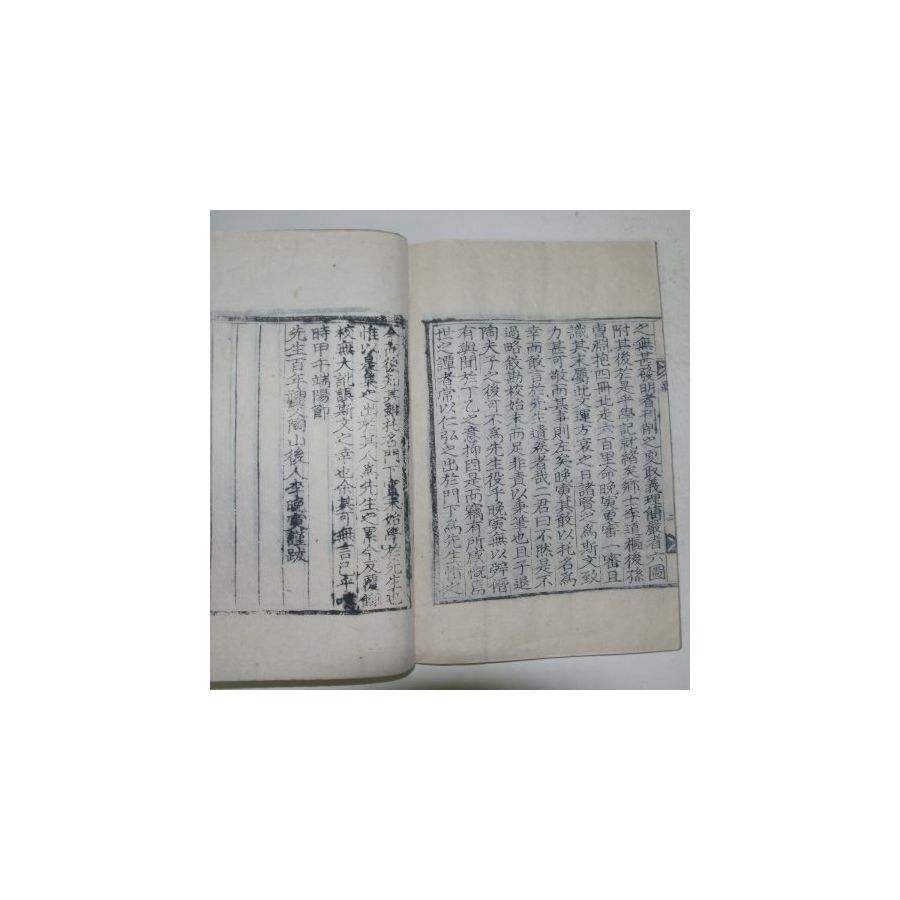 之無甚發明者刊削之更取義理簡嚴者六圖
附其後於是乎學記就緒矣鄕士李道樞後孫
賣淵抱四冊北走六百里命晩寅更審一審且
識其末屬此文運方衰之日諸賢之爲斯文致
力甚可敬而其事則左矣晩寅其敢以托名爲
幸而敢言於先生遺卷者哉二君曰不然是不
過略敵勘校始末而足非責以秉筆也且子退
陶夫子之後可不爲先生役乎晩寅無以辭僭
有與聞於丁乙之意抑因是而竊有所感慨焉
世之譚者常以仁弘之出於門下爲先生惜之
今而後知其雖托名門下實未始學於先生也
惟以是集之出於其人爲先生之累今反覆
校無大訛誤斯文之幸也余其可無言已乎噫
時甲午端陽節
先生百年陶山後人李晩寅謹跋